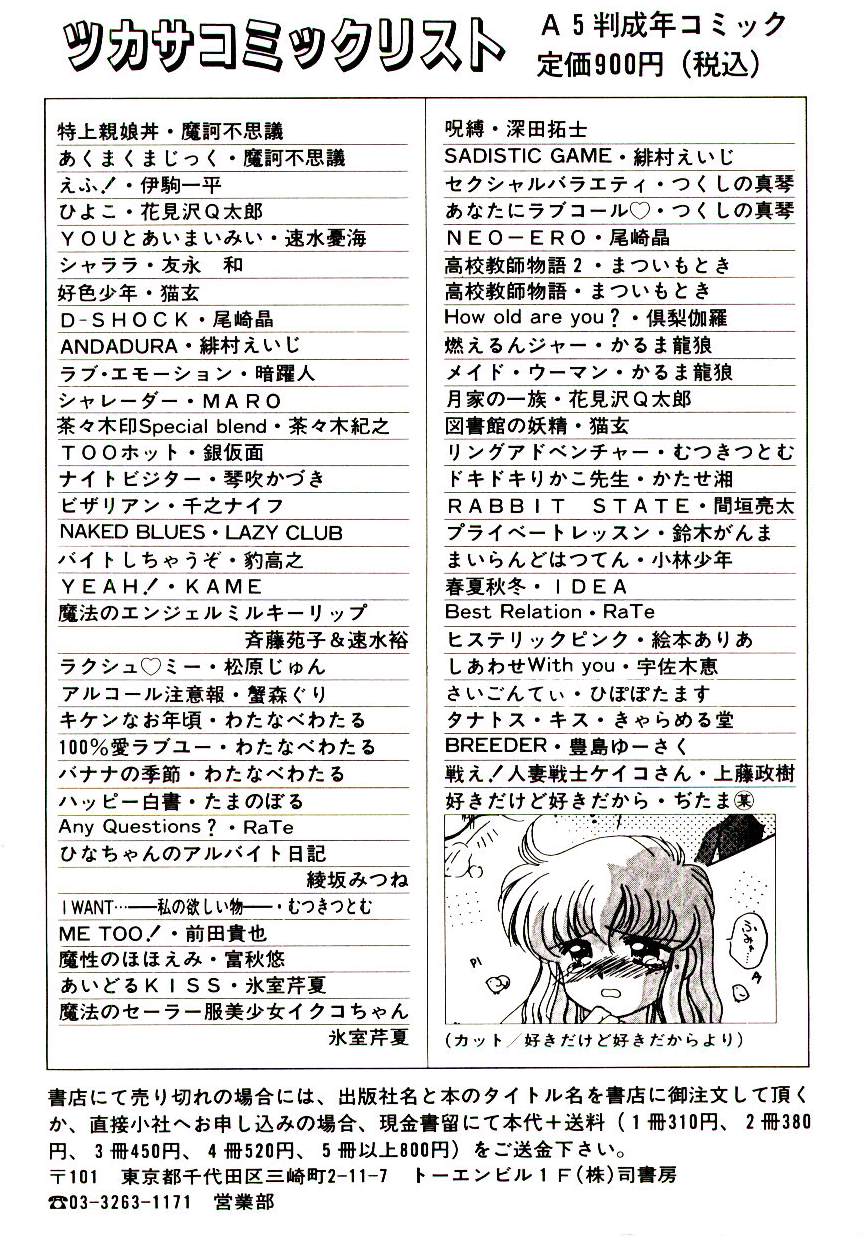 ツカサコミックリスト
A5判成年コミック
定価900円（税込）
特上親娘丼・魔訶不思議
あくまくまじっく・魔訶不思議
えふ!・伊駒一平
ひよこ・花見沢Q太郎
YOUとあいまいみい・速水憂海
シャララ・友永　和
好色少年・猫玄
D-SHOCK・尾崎晶
ANDADURA・緋村えいじ
ラブ・エモーション・暗躍人
シャレーダー・MARO
茶々木印Special blend・茶々木紀之
TOOホット・銀仮面
ナイトビジター・琴吹かづき
ビザリアン・千之ナイフ
NAKED BLUES・LAZY CLUB
バイトしちゃうぞ・豹高之
YEAH!・KAME
魔法のエンジェルミルキーリップ
斉藤苑子＆速水裕
ラクシュ♡ミー・松原じゅん
アルコール注意報・蟹森ぐり
キケンなお年頃・わたなべわたる
100％愛ラブユー・わたなべわたる
バナナの季節・わたなべわたる
ハッピー白書・たまのぼる
Any Questions？・RaTe
ひなちゃんのアルバイト日記
綾坂みつね
I WANT…――私の欲しい物――・むつきつとむ
ME TOO!・前田貴也
魔性のほほえみ・富秋悠
あいどるKISS・氷室芹夏
魔法のセーラー服美少女イクコちゃん
氷室芹夏
呪縛・深田拓士
SADISTIC GAME・緋村えいじ
セクシャルバラエティ・つくしの真琴
あなたにラブコール♡・つくしの真琴
NEO－ERO・尾崎晶
高校教師物語2・まついもとき
高校教師物語・まついもとき
How old are you？・倶梨伽羅
燃えるんジャー・かるま龍狼
メイド・ウーマン・かるま龍狼
月家の一族・花見沢Q太郎
図書館の妖精・猫玄
リングアドベンチャー・むつきつとむ
ドキドキりかこ先生・かたせ湘
RABBIT　STATE・間垣亮太
プライベートレッスン・鈴木がんま
まいらんどはつてん・小林少年
春夏秋冬・IDEA
Best Relation・RaTe
ヒステリックピンク・絵本ありあ
しあわせWith you・宇佐木恵
さいごんてぃ・ひぽぽたます
タナトス・キス・きゃらめる堂
BREEDER・豊島ゆーさく
戦え!人妻戦士ケイコさん・上藤政樹
好きだけど好きだから・ぢたま㊣
ふみゃ…
（カット／好きだけど好きだからより）
書店にて売り切れの場合には、出版社名と本のタイトル名を書店に御注文して頂く
か、直接小社へお申し込みの場合、現金書留にて本代＋送料（1冊310円、2冊380
円、3冊450円、4冊520円、5冊以上800円）をご送金下さい。
〒101　東京都千代田区三崎町2-11-7　トーエンビル1F（株）司書房
☎03-3263-1171　営業部